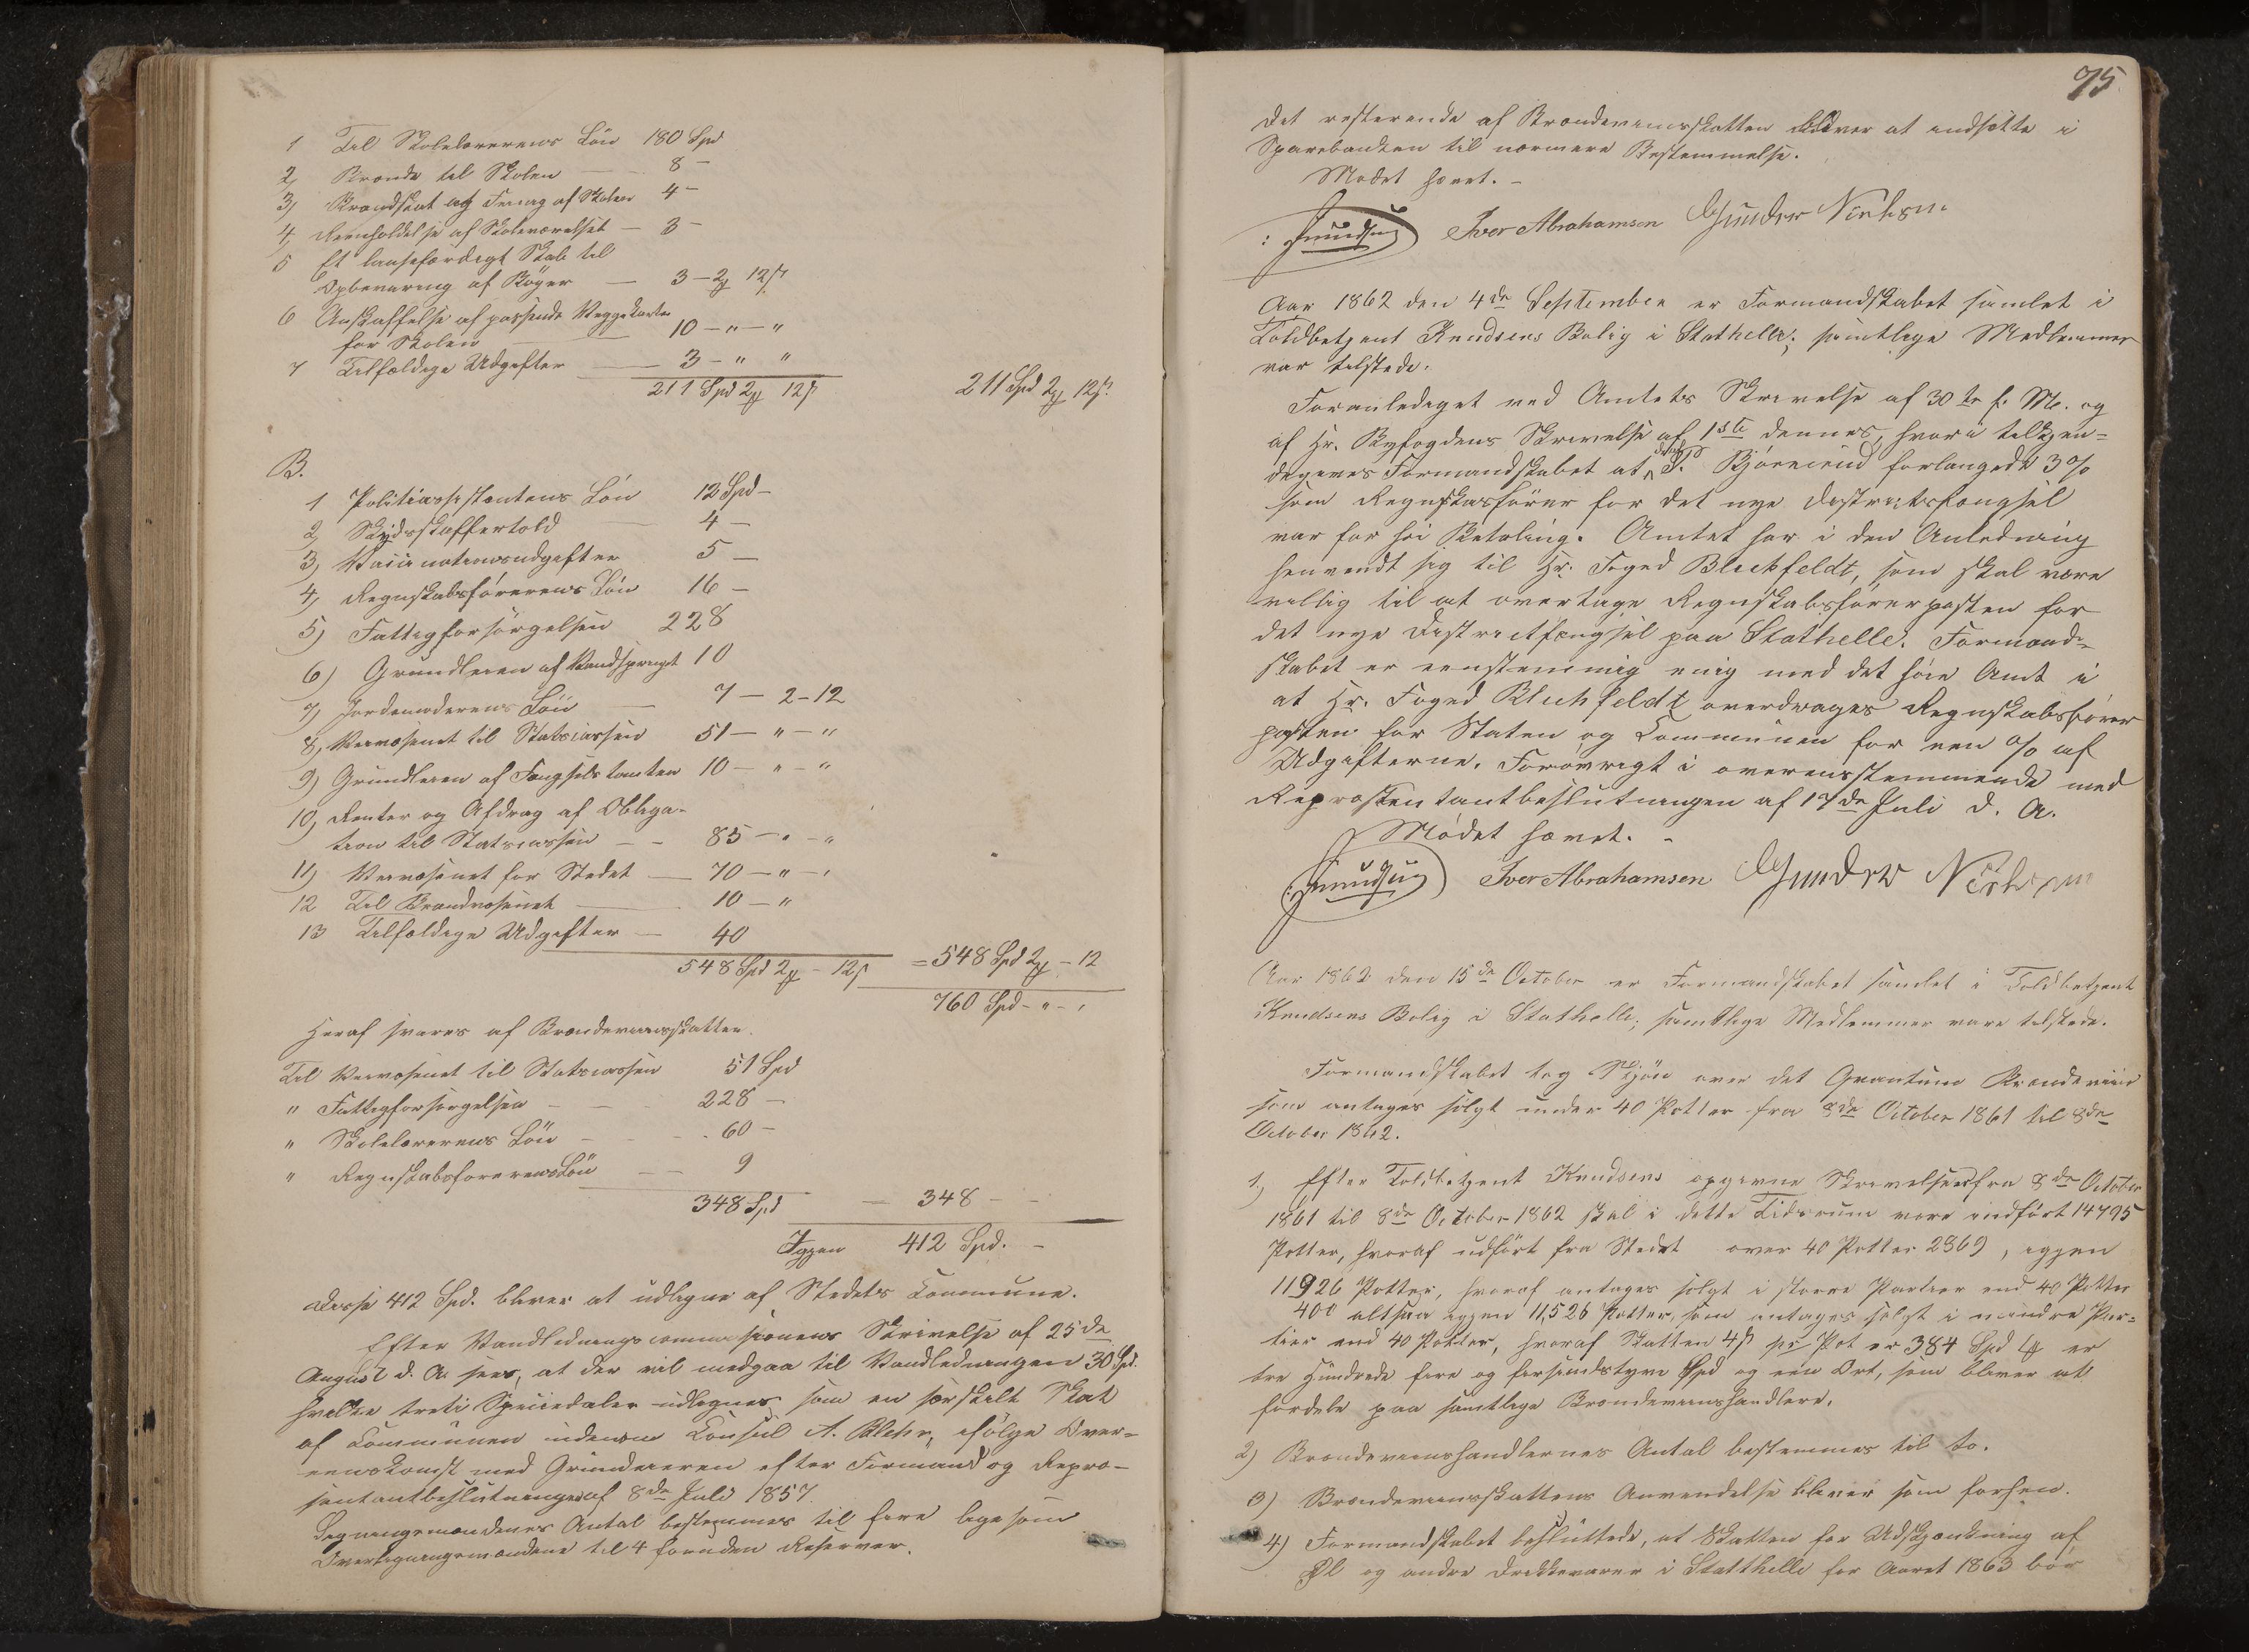 1 Til Skolelærerens Løn 180 Spd
2, Brænde til Skolen — 8 –
3, Brandskat og Feiing af Skolen 4 –
4, Reenholdelse af Skoleværelset – 3 –
5 Et laasefærdigt Skab til
Opbevaring af Bøger — 3 – 2 12
6 Anskaffelse af passende Veggekarter
for Skolen — 10 – " – "
7 Tilfældige Udgifter — 3 – " "
211 Spd 2 12 211 Spd 2 12
B.
1 Politiassistentens Løn 12 Spd –
2, Skydsskaffertold — 4 –
3, Vaccinationsudgifter 5 –
4, Regnskabsførerens Løn 16 –
5) Fattigforsørgelsen 228
6) Grundleien af Vandsprøjt 10
7) Jordemoderens Løn — 7 – 2 – 12
8, Veivæsenet til Statscassen 51 – " – "
9) Grundleien af Fængselstomten 10 – " – "
10, Renter og Afdrag af Obliga-
tion til Statscassen – – 85 – " – "
11) Veivæsenet for Stedet — 70 – " – "
12 Til Brandvæsenet — 10 – "
13 Tilfældige Udgifter — 40
548 Spd 2 – 12 = 548 Spd 2 – 12
760 Spd – " – "
Heraf svares af Brændeviinsskatten.
Til Veivæsenet til Statscassen 51 Spd
" Fattigforsørgelsen – – 228 –
" Skolelærerens Løn – – 60 –
" Regnskabsførerens Løn — 9
348 Spd — 348 – –
Igjen 412 Spd. –
Disse 412 Spd. bliver at udligne af Stedets Commune.
Efter Vandledningscommissionens Skrivelse af 25de
August d. A. sees, at der vil medgaa til Vandledningen 30 Spd.
hvilke treti Speciedaler udlignes som en særskilt Skat
af Communen undtagen Consul A. Blehr, ifølge Over-
eenskomst med Grundeieren efter Formand og Repræ-
sentantbeslutninger af 8de Juli 1857.
Ligningsmændenes Antal bestemmes til fire ligesom
Overligningsmændene til 4 foruden Reserver.
75
Det resterende af Brændeviinsskatten bliver at indsætte i
Sparebanken til nærmere Bestemmelse.
Mødet hævet. –
Knudsen Iver Abrahamsen Gunder Nielsen
Aar 1862 den 4de September er Formandskabet samlet i
Toldbetjent Knudsens Bolig i Stathelle; samtlige Medlemmer
var tilstede.
Foranlediget ved Amtets Skrivelse af 30te f. M. og
af Hr. Byfogdens Skrivelse af 1ste dennes, hvori tilkjen-
degives Formandskabet at P. Bjørneund forlangede 3 %
som Regnskabsfører for det nye Districtsfængsel
var for høi Betaling. Amtet har i den Anledning
henvendt sig til Hr. Foged Blichfeldt, som skal være
villig til at overtage Regnskabsførerposten for
det nye Districtfængsel paa Stathelle. Formand-
skabet er eenstemmig enig med det høie Amt i
at Hr. Foged Blichfeldt overdrages Regnskabsfører
posten for Staten og Communen for een % af
Udgifterne. Forøvrigt i overensstemmende med
Repræsentantbeslutningen af 17de Juli d. A.
Mødet hævet. –
Knudsen Iver Abrahamsen Gunder Nielsen
Aar 1862 den 15de October er Formandskabet samlet i Toldbetjent
Knudsens Bolig i Stathelle; samtlige Medlemmer vare tilstede.
Formandskabet tog Skjøn over det Qvantum Brændeviin
som antages solgt under 40 Potter fra 8de October 1861 til 8de
October 1862.
1, Efter Toldbetjent Knudsens opgivne Skrivelse fra 8de October
1861 til 8de October 1862 skal i dette Tidsrum være indført 14795
Potter, hvoraf udført fra Stedet over 40 Potter 2869, igjen
11926 Potter, hvoraf antages solgt i større Partier end 40 Potter
400 altsaa igjen 11,526 Potter, som antages solgt i mindre Par-
tier end 40 Potter, hvoraf Skatten 4 ß pr Pot er 384 Spd er
tre Hundrede fire og firsindstyve Spd og een Ort, som bliver at
fordele paa samtlige Brændeviinshandlere.
2) Brændeviinshandlernes Antal bestemmes til to.
3) Brændeviinsskattens Anvendelse bliver som forhen.
4) Formandskabet besluttede, at Skatten for Udskjænkning af
Øl og andre Drikkevarer i Statthelle for Aaret 1863 bør